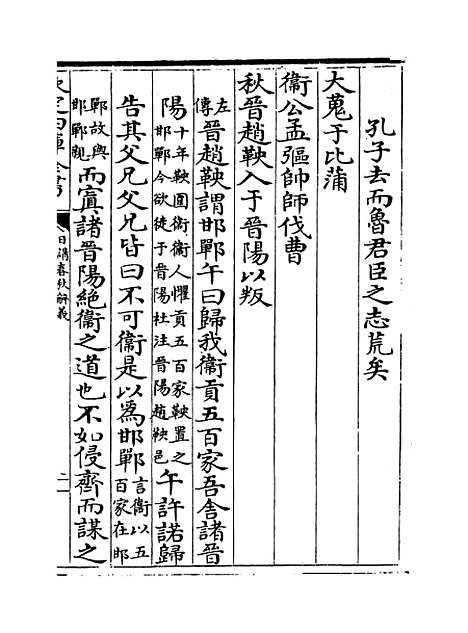 孔子去而魯君臣之志荒矣
大蒐于比蒲
衞公孟彄帥師伐曹
秋晉趙鞅入于晉陽以叛
左傳晉趙鞅謂邯鄲午曰歸我衞貢五百家吾舍諸晉
陽十年鞅圍衞衞人懼貢五百家鞅置之邯鄲今欲徙于晉陽杜注晉陽趙鞅邑午許諾歸
告其父兄父兄皆曰不可衞是以爲邯鄲言衞以五百家在邯
鄲故與邯鄲親而寘諸晉陽絶衞之道也不如侵齊而謀之
日講春秋解義
二